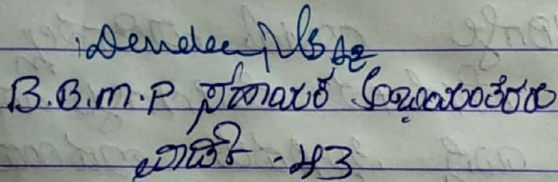 B.B.M.P ಸಹಾಯಕ ಅಭಿಯಂತರರು
ವಾರ್ಡ್ - 43